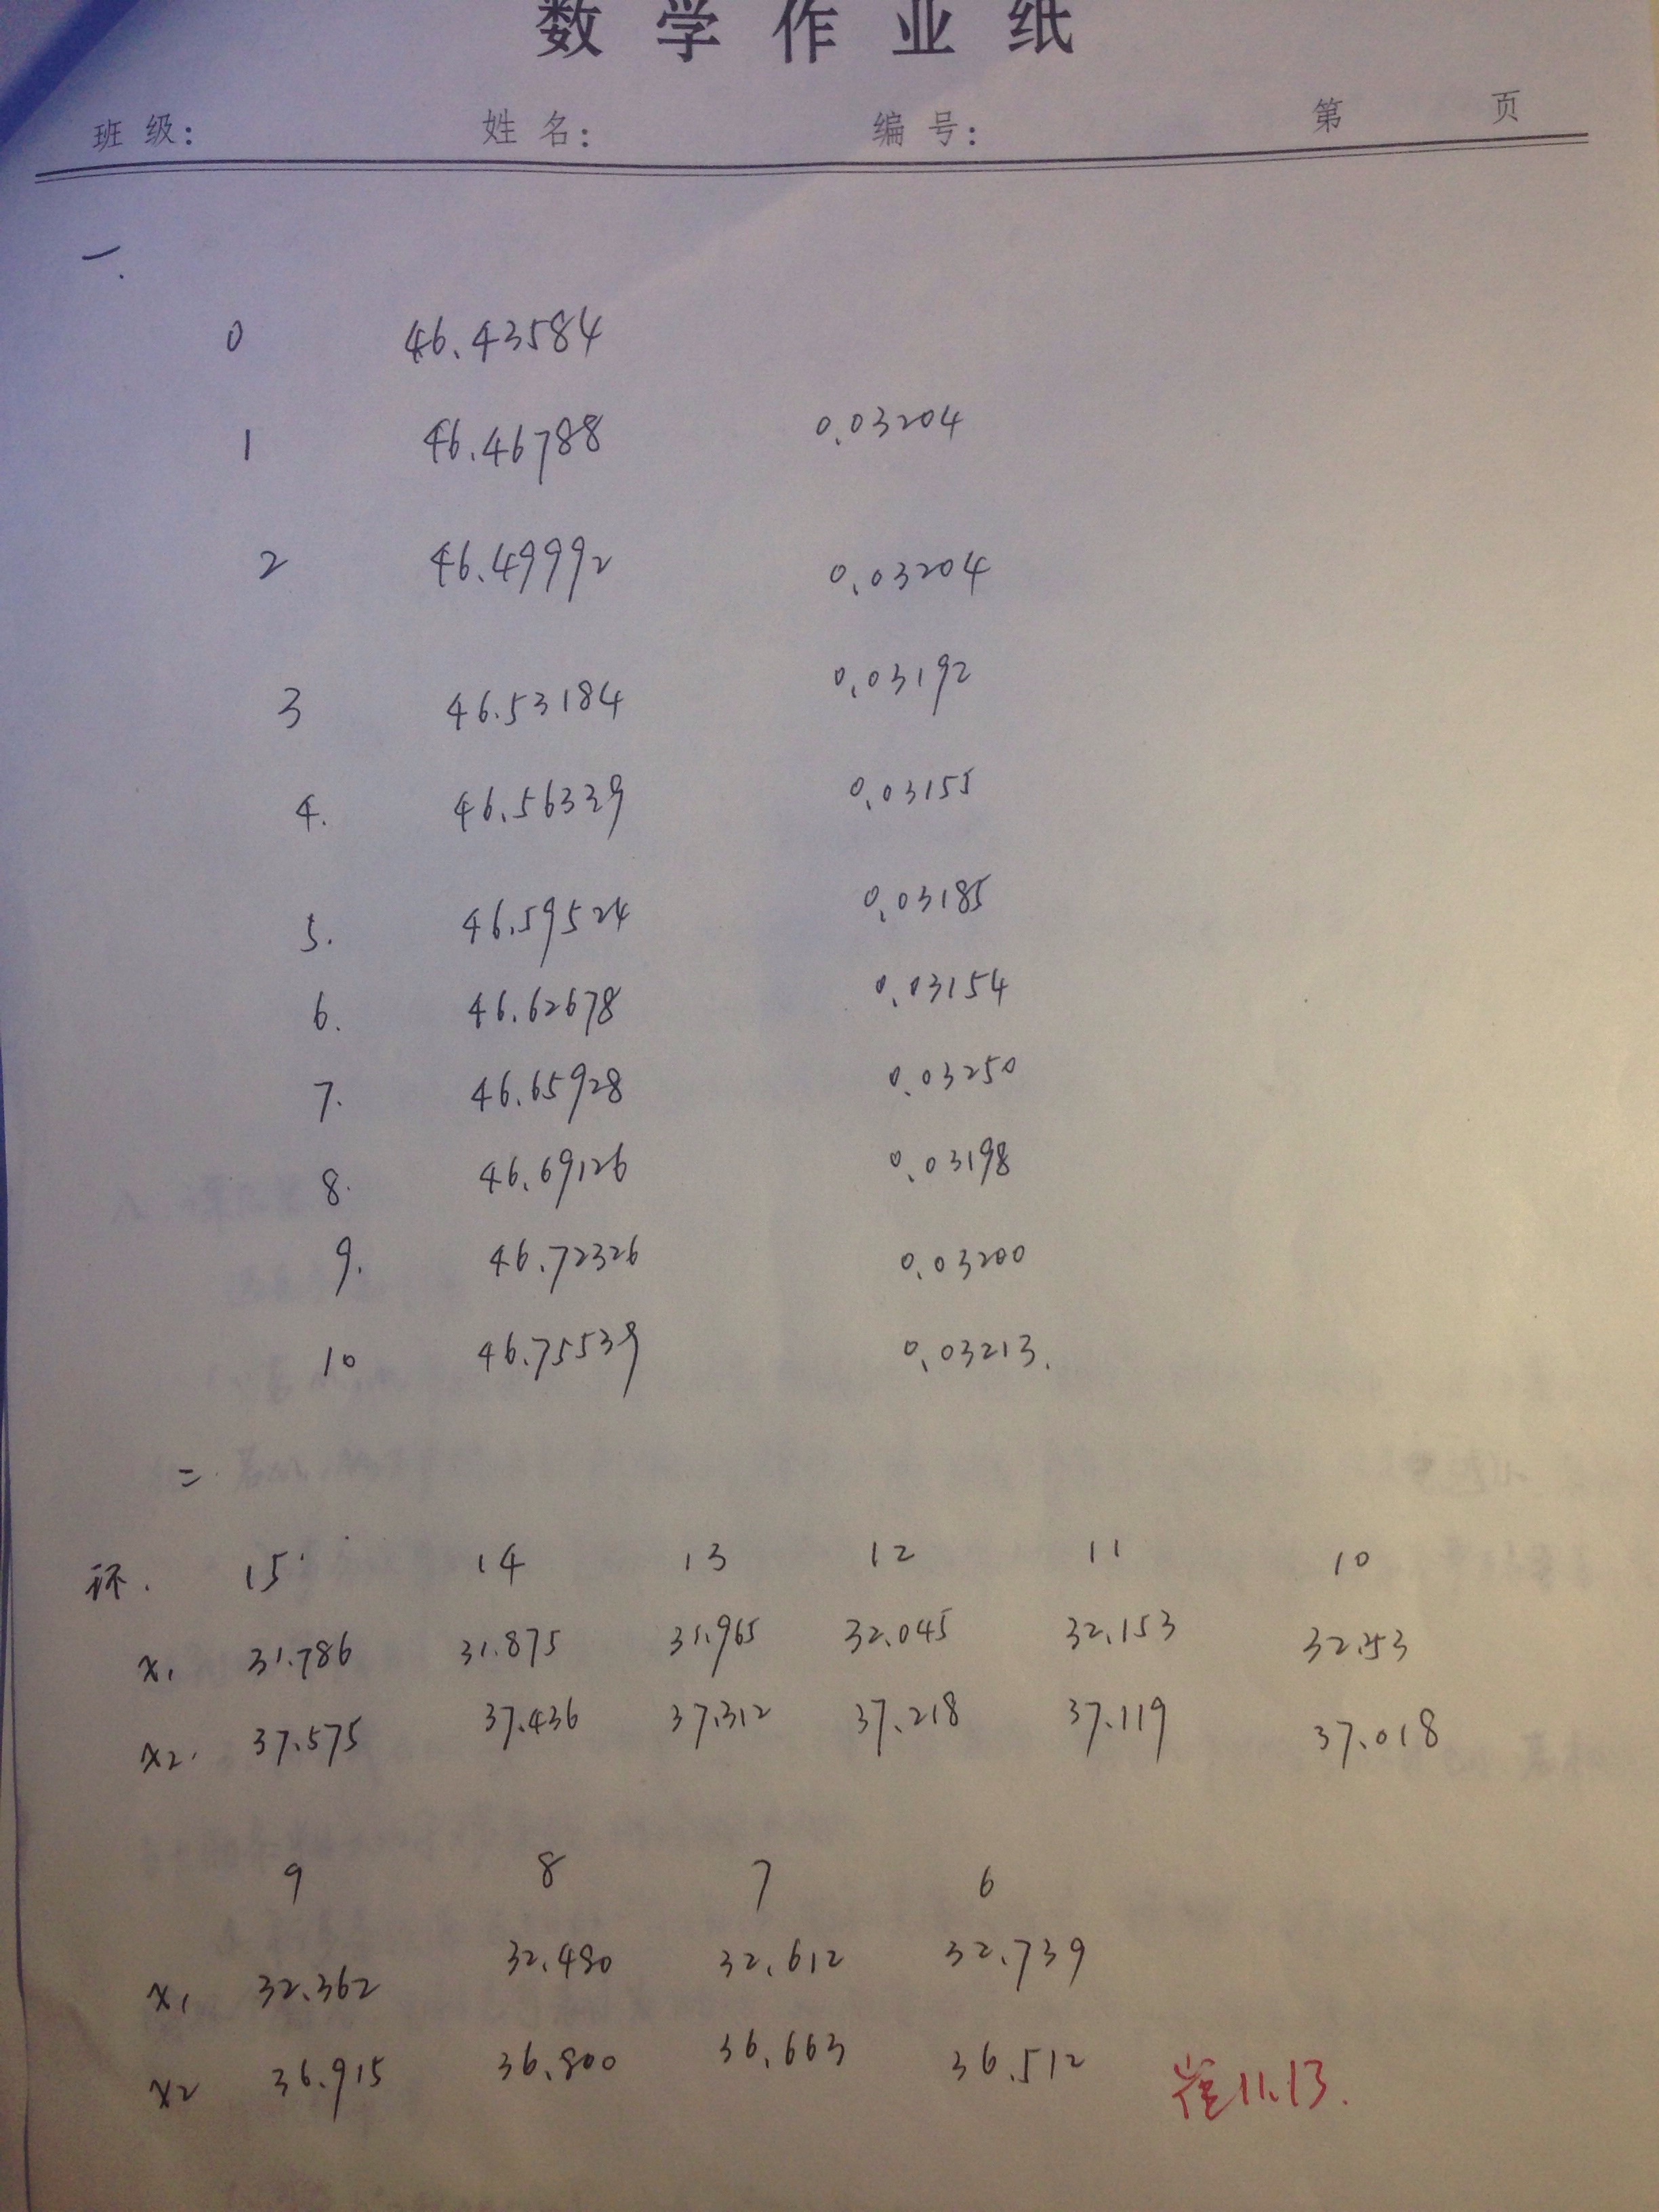 数学作业纸
班级: 姓名: 编号: 第 页
一.
0 46.43584
1 46.46788 0.03204
2 46.49992 0.03204
3 46.53184 0.03192
4. 46.56339 0.03155
5. 46.59524 0.03185
6. 46.62678 0.03154
7. 46.65928 0.03250
8. 46.69126 0.03198
9. 46.72326 0.03200
10 46.75539 0.03213.
二.
环. 15 14 13 12 11 10
x1 31.786 31.875 31.965 32.045 32.153 32.253
x2. 37.575 37.436 37.312 37.218 37.119 37.018
9 8 7 6
x1 32.362 32.480 32.612 32.739
x2 36.915 36.800 36.663 36.512
崔11.13.